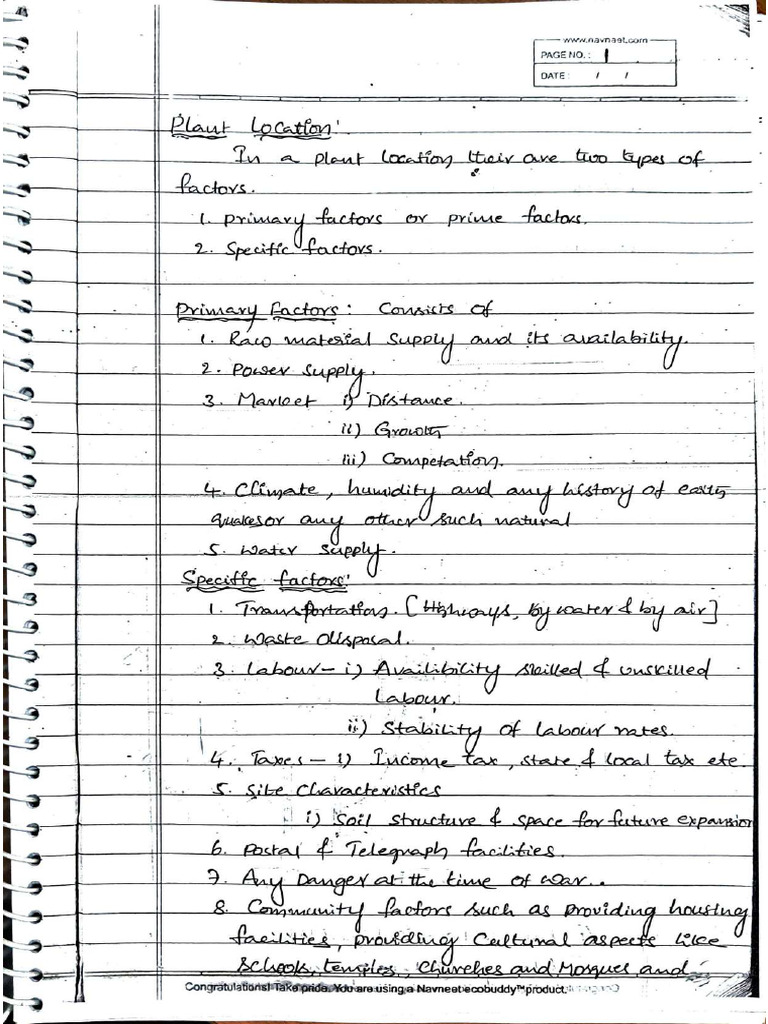 www.navneet.com
PAGE NO.: 1
DATE: / /
Plant Location:
In a plant location their are two types of
factors.
1. primary factors or prime factors.
2. Specific factors.
Primary Factors: Consists of
1. Raw material supply and its availability.
2. Power supply.
3. Market i) Distance.
ii) Growth
iii) Competation.
4. Climate, humidity and any history of earth
quakes or any other such natural
5. Water supply.
Specific factors:
1. Transportation. [Highways, by water & by air]
2. Waste disposal.
3. Labour - i) Availibility skilled & unskilled
Labour.
ii) Stability of labour rates.
4. Taxes - i) Income tax, state & local tax etc.
5. Site Characteristics
i) Soil structure & space for future expansion
6. Postal & Telegraph facilities.
7. Any Danger at the time of war..
8. Community factors such as providing housing
facilities, providing Cultural aspects like
Schools, temples, Churches and Mosques and
Congratulations! Take pride. You are using a Navneet ecobuddy™ product.